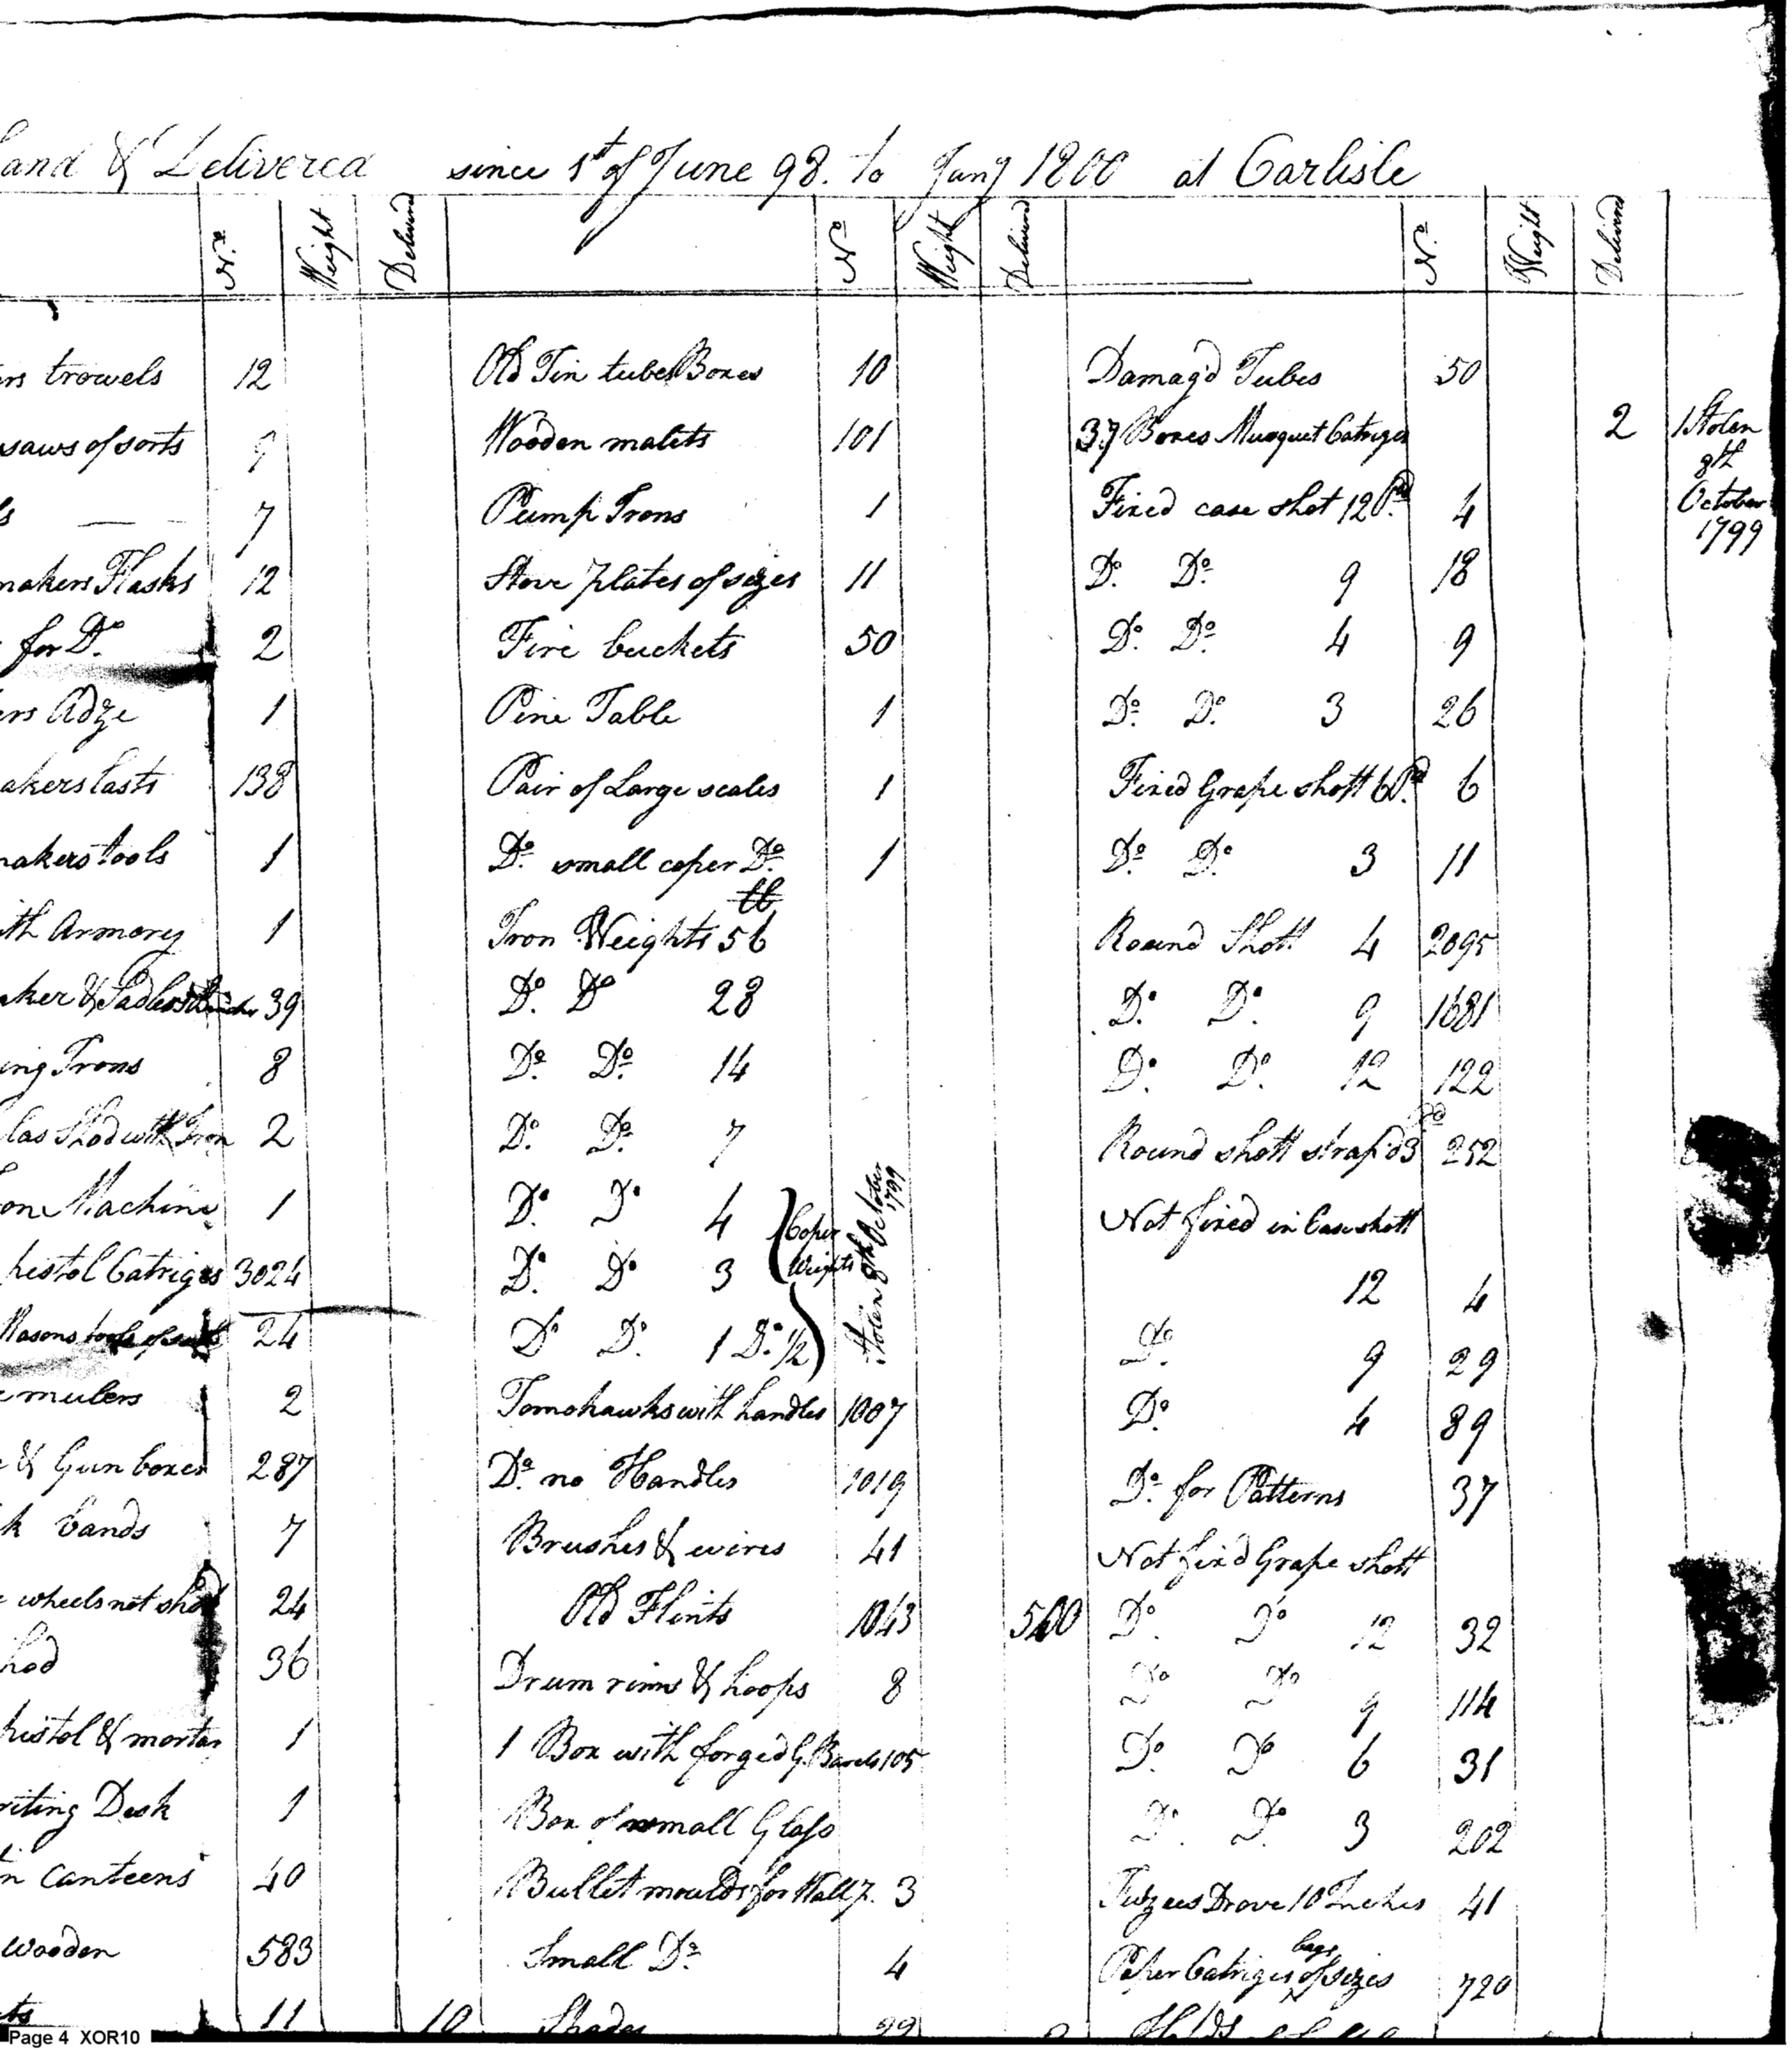 and & Delivered since 1st of June 98. to Jany 1800 at Carlisle
No. Weight Delivered No Weight Delivered No. Weight Delivered
ers trowels 12 Old Tin tube Boxes 10 Damag'd Tubes 50
saws of sorts 9 Wooden malets 101 37 Boxes Musquet Catriges 2 1 Stolen
8th
7 Pump Irons 1 Fixed case shot 12 Pd 4 October
1799
makers Flasks 12 Stove plates of sizes 11 Do. Do. 9 18
for Do. 2 Fire buckets 50 Do. Do. 4 9
ers Adze 1 Pine Table 1 Do. Do. 3 26
akers lasts 138 Pair of Large scales 1 Fixed Grape shott 6 Pd. 6
makers tools 1 Do. small coper Do. 1 Do. Do. 3 11
ith Armory 1 Iron Weights 56 lb Round Shott 4 2095
aker & Sadlers 39 Do. Do 28 Do. Do. 9 1681
ing Irons 8 Do. Do. 14 Do. Do. 12 122
las Shod with Iron 2 Do. Do. 7 Round shott strap'd 3 Pd 252
on Machine 1 Do. Do. 4 Coper Not fixed in Case shott
pistol Catriges 3024 Do. Do 3 Weights Stolen 8th October 1799 12 4
Masons tools of sorts 24 Do Do. 1 Do. 1/2 Do. 9 29
mulers 2 Tomohawks with handles 1007 Do. 4 89
& Gun boxes 287 Do. no Handles 1019 Do. for Patterns 37
k bands 7 Brushes & wires 41 Not fixd Grape shott
wheels not shod 24 Old Flints 1043 500 Do. Do 12 32
hod 36 Drum rims & hoops 8 Do Do 9 114
pistol & mortar 1 1 Box with forged G. Barels 105 Do. Do 6 31
riting Desk 1 Box of small Glass Do. Do. 3 202
n Canteens 40 Bullet moulds for Wall p. 3 Fuzees Drove 10 Inches 41
wooden 583 Small Do. 4 Paper Catriges bags of sizes 720
ts 11 10
Page 4 XOR10